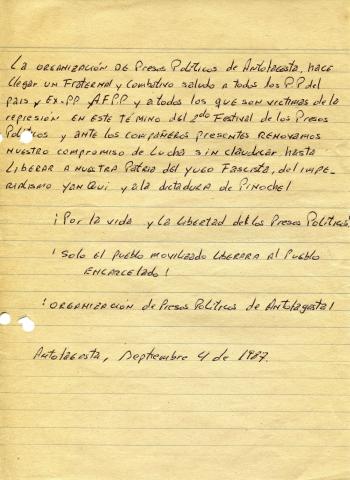 La ORGANIZACIÓN DE Presos Políticos de Antofagasta, hace
llegar un Fraternal y Combativo saludo a todos los PP del
país y Ex-PP AFPP y a todos los que son victimas de la
represión en este témino del 2do Festival de los Presos
Políticos y ante los compañeros presentes renovamos
nuestro compromiso de Lucha sin claudicar hasta
Liberar a nuestra Patria del yugo Fascista, del impe-
rialismo yanqui y a la dictadura de Pinochet
¡Por la vida y la Libertad de los Presos Políticos!
¡Solo el pueblo movilizado liberara al Pueblo
encarcelado!
¡ORGANIZACIÓN de Presos Políticos de Antofagasta!
Antofagasta, Septiembre 4 de 1987.